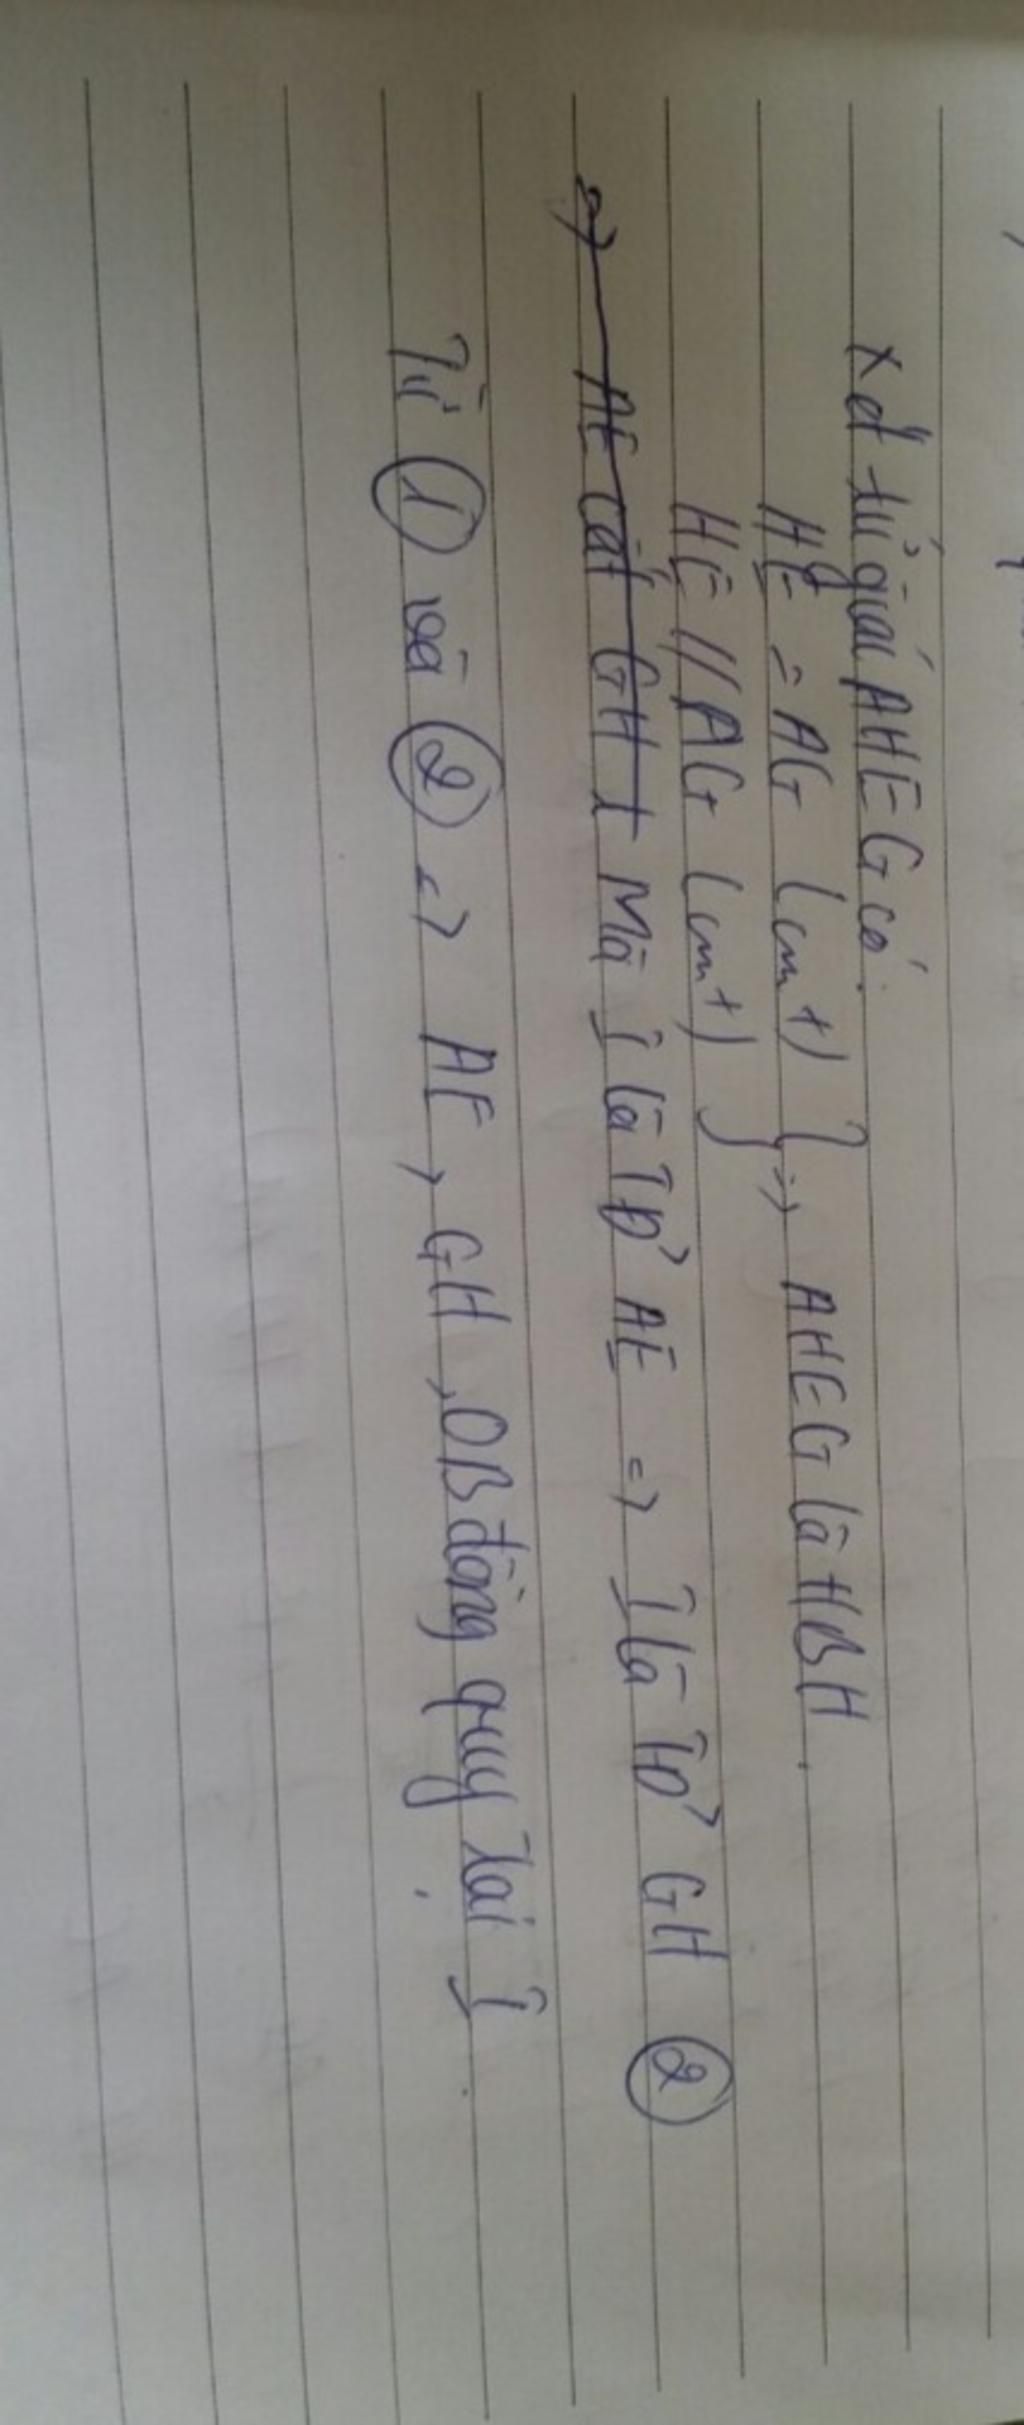 Xét tứ giác AHEG có:
HE = AG (cmt) } => AHEG là HBH.
HE // AG (cmt)
=> AE cắt GH t Mà I là TĐ' AE => I là TĐ' GH (2)
Từ (1) và (2) => AE, GH, OB đồng quy tại I.